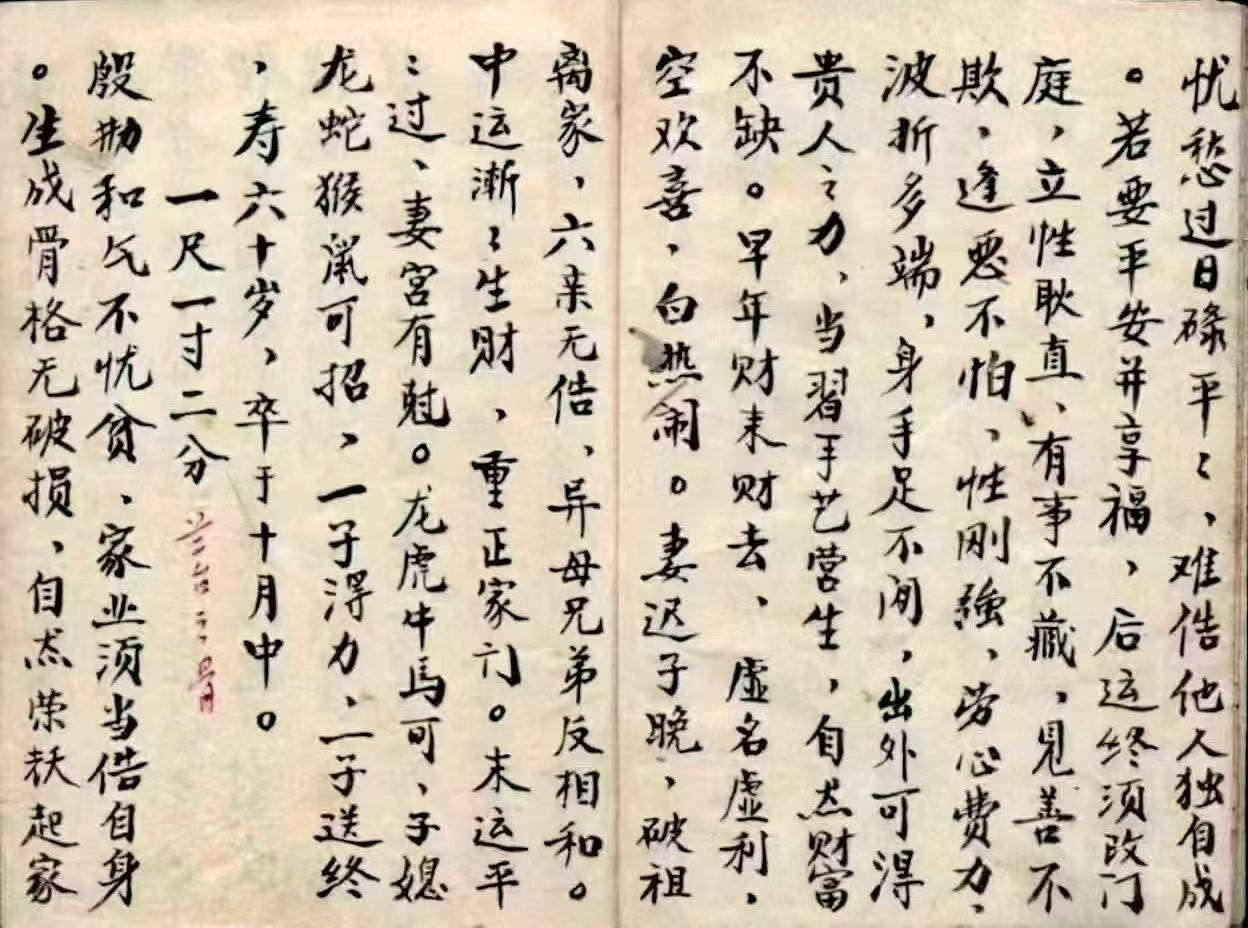 忧愁过日碌平〻、难偌他人独自成
。若要平安并享福、后运终须改门
庭，立性耿直、有事不藏，见善不
欺，逢恶不怕、性刚強、劳心费力、
波折多端，身手足不闲，出外可得
贵人之力、当習手艺营生，自然财富
不缺。早年财来财去、虚名虚利，
空欢喜、白热闹。妻迟子晚，破祖
离家，六亲无偌、异母兄弟反相和。
中运渐〻生财、重正家门。末运平
〻过、妻宫有尅。龙虎牛马可、子媳
龙蛇猴鼠可招、一子得力、二子送终
、寿六十岁，卒于十月中。
一尺一寸二分
殷勤和气不忧贫、家业须当偌自身
。生成骨格无破损、自然荣扶起家